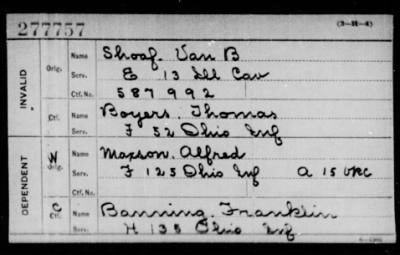 277757 (3-H-4)
INVALID Orig. Name Shoaf. Van B
Serv. E 13 Ill Cav
Ctf. No. 587992
Ctf. Name Boyers. Thomas
Serv. F 52 Ohio Inf
DEPENDENT W Orig. Name Maxson. Alfred
Serv. F 125 Ohio Inf A 15 VRC
Ctf. No.
C Ctf. Name Banning. Franklin
Serv. H 135 Ohio Inf